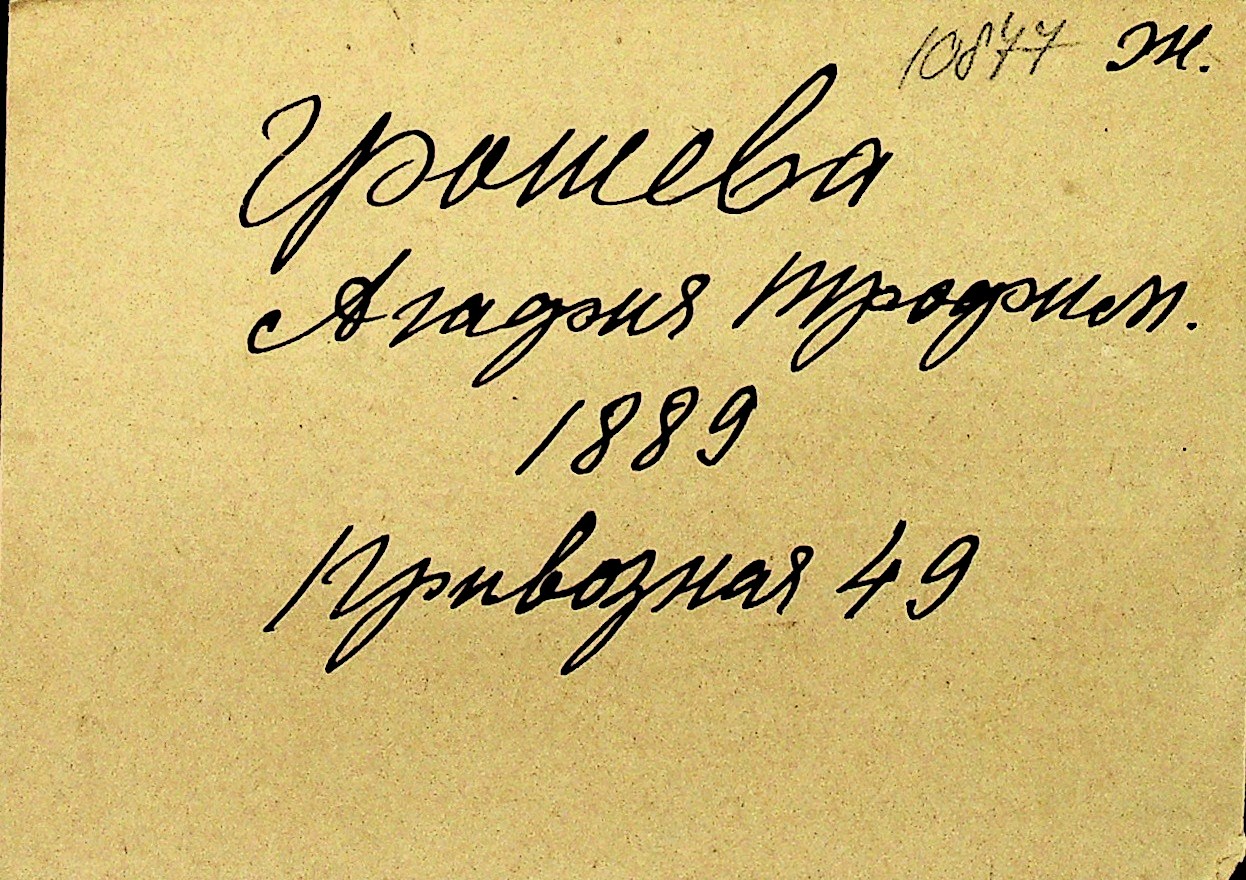 10877 ж.
Грошева
Агафия Трофим.
1889
Привозная 49